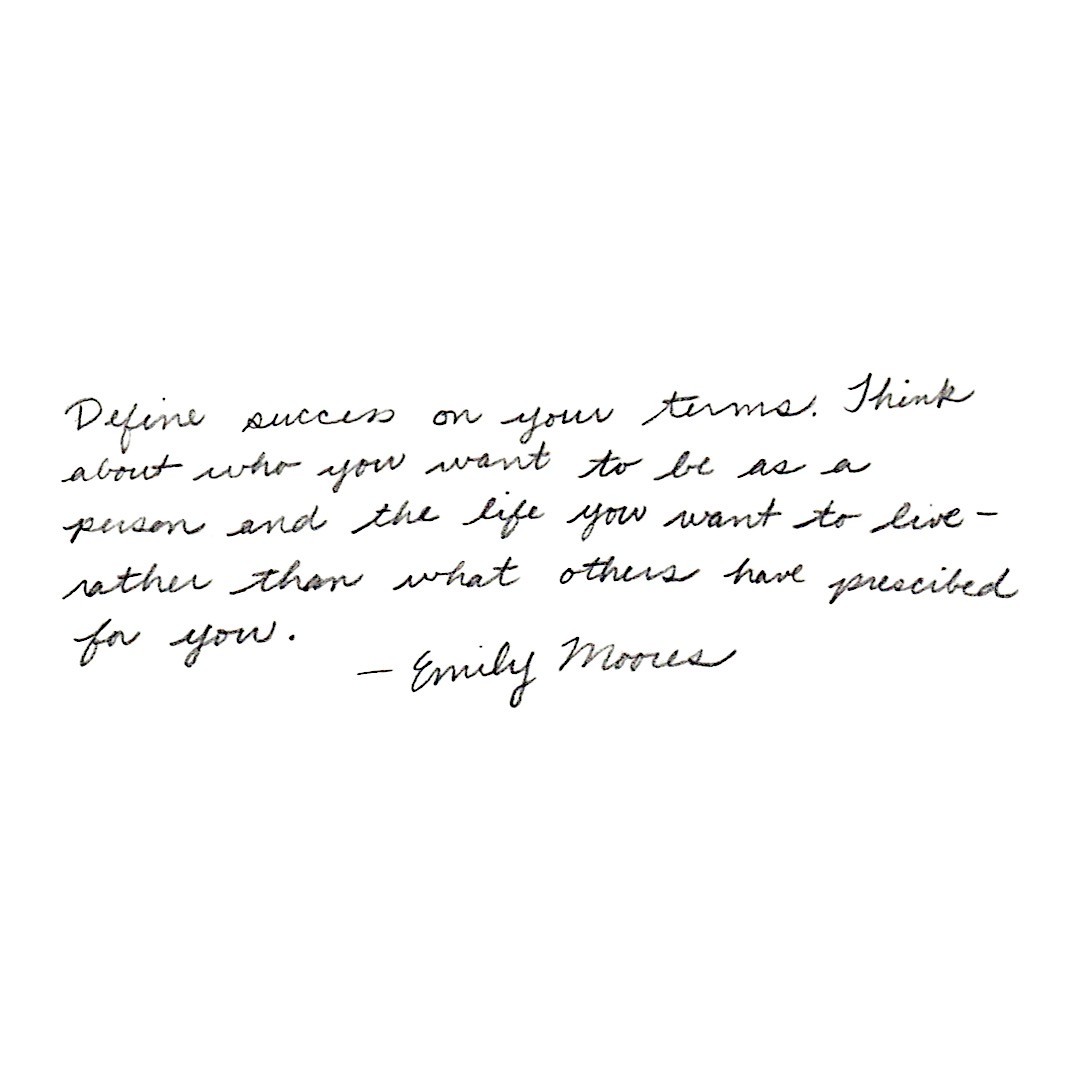 Define success on your terms. Think
about who you want to be as a
person and the life you want to live -
rather than what others have prescibed
for you.
- Emily Moores